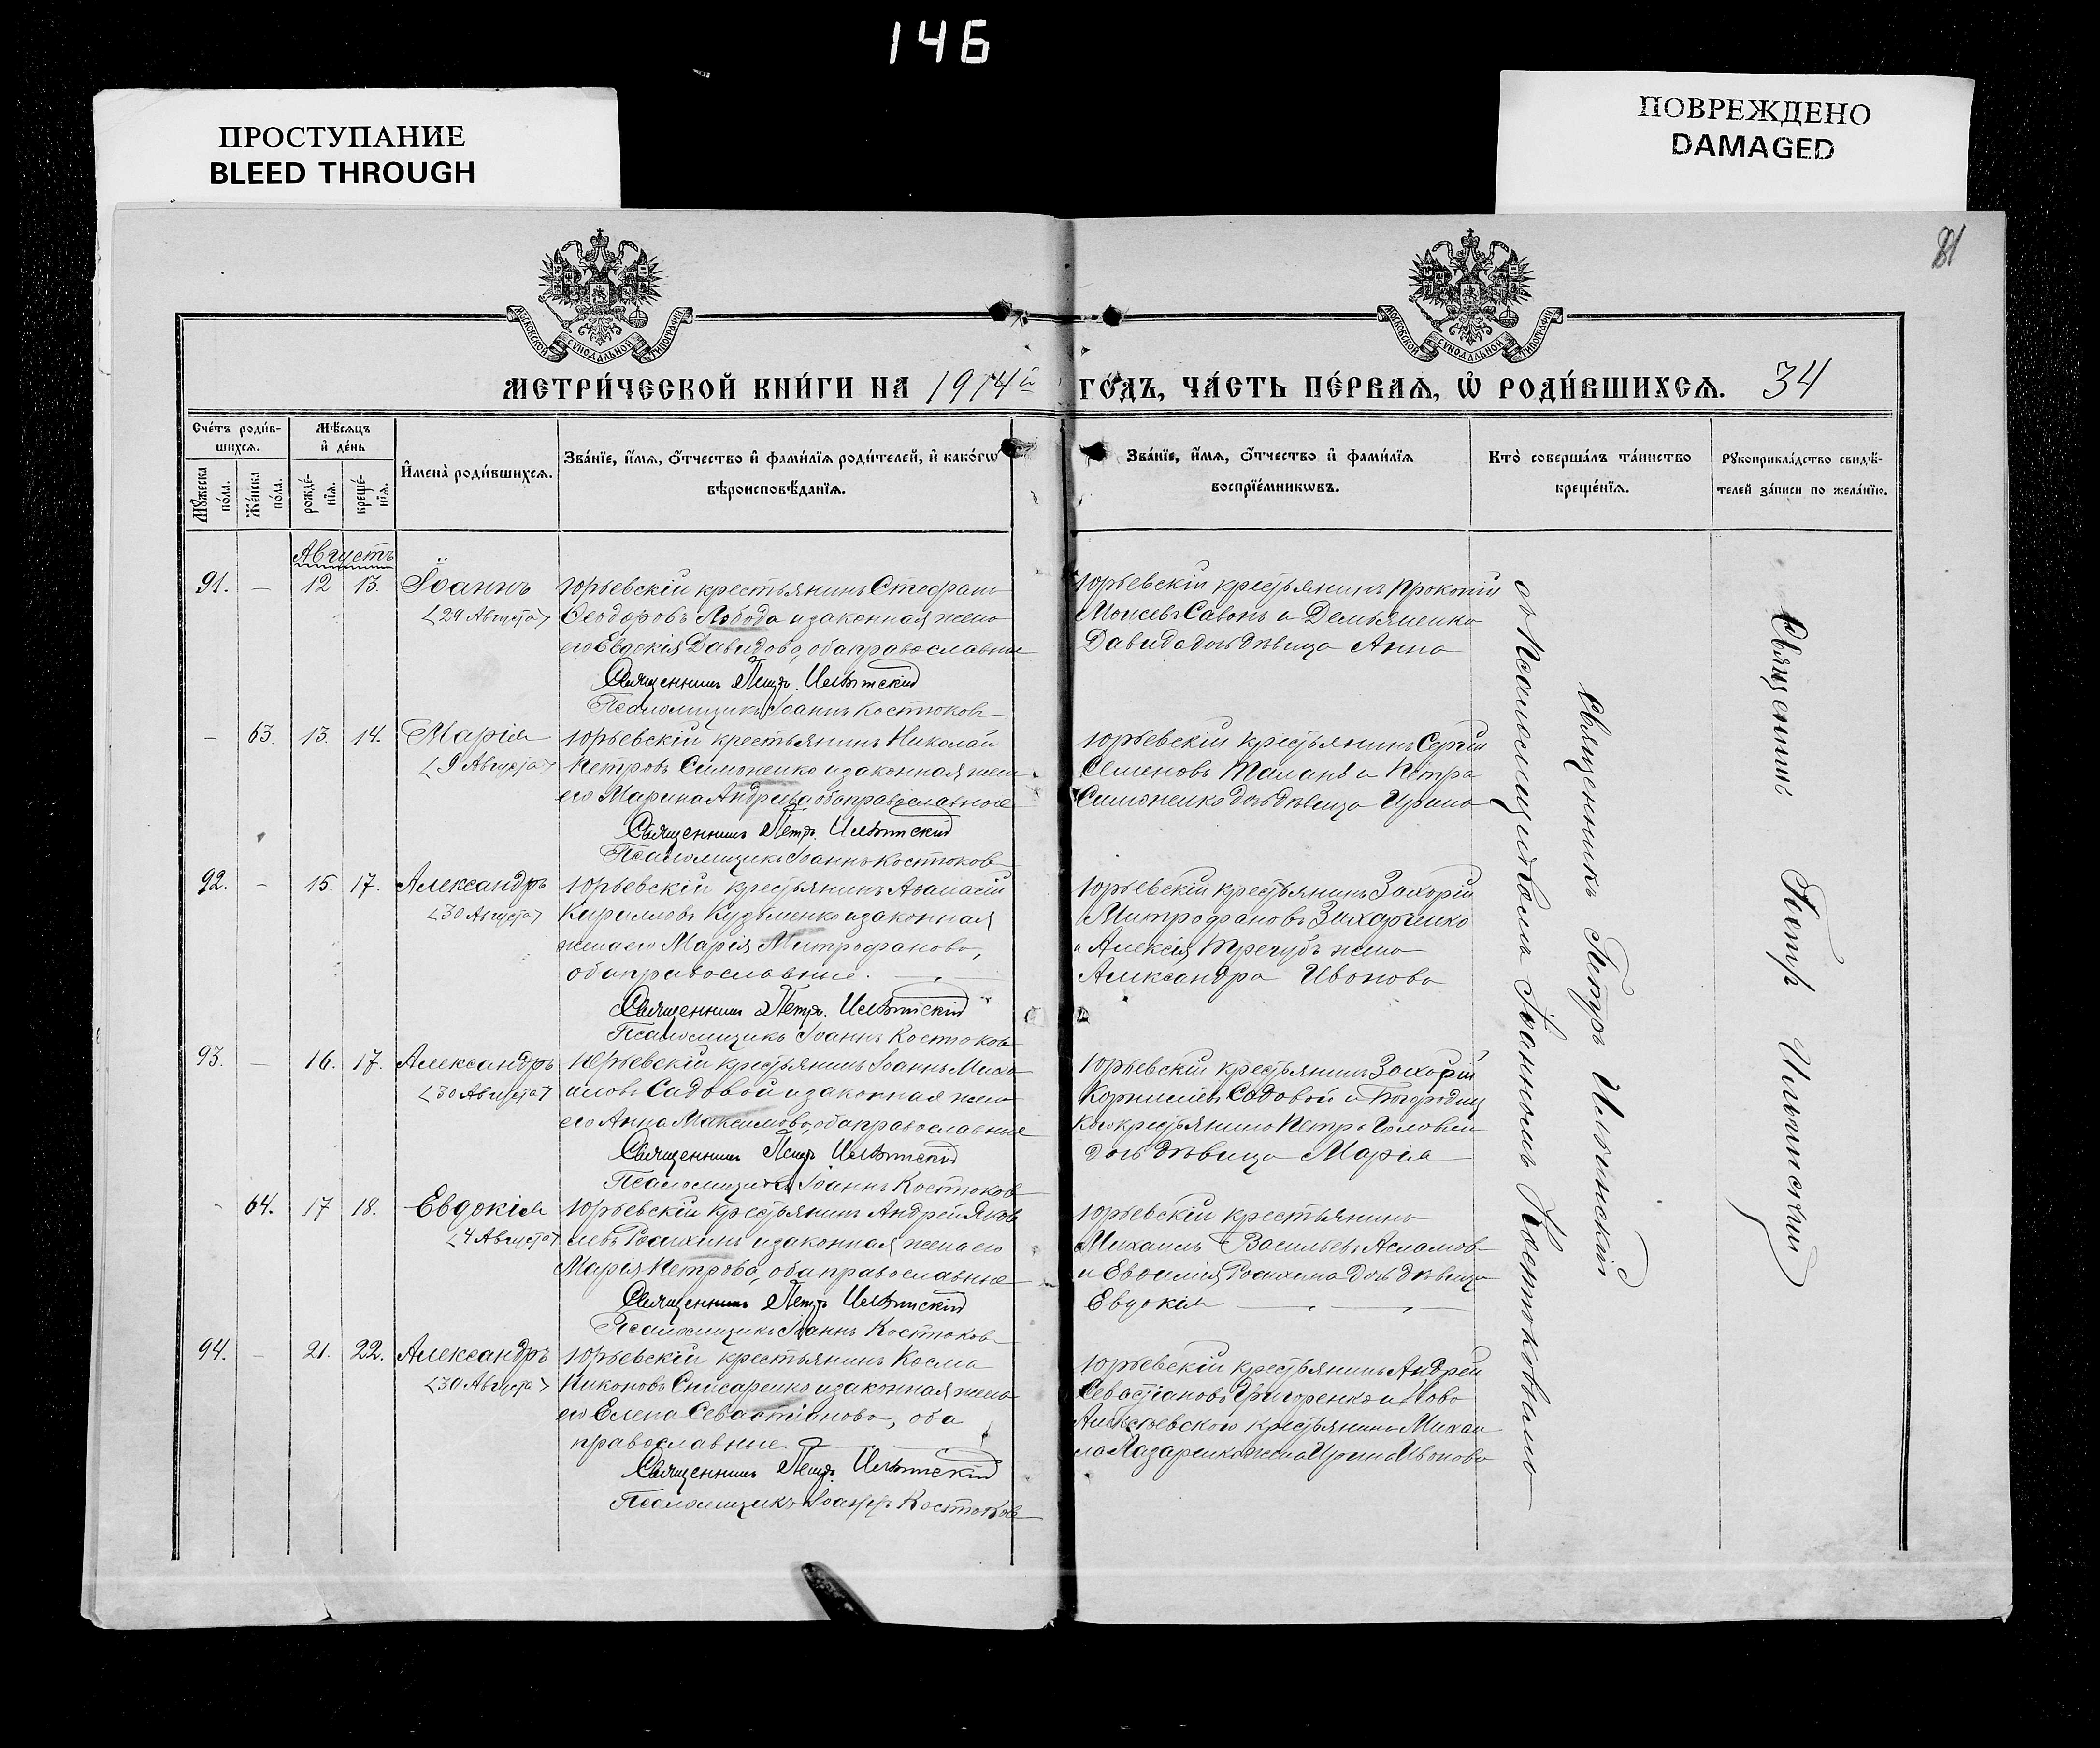 146
ПРОСТУПАНИЕ
BLEED THROUGH
ПОВРЕЖДЕНО
DAMAGED
81
МОСКОВСКОЙ СѴНОДАЛЬНОЙ ТИПОГРАФІИ
МОСКОВСКОЙ СѴНОДАЛЬНОЙ ТИПОГРАФІИ
МЕТРИ́ЧЕСКОЙ КНИ́ГИ НА 1914й ГО́ДЪ, ЧА́СТЬ ПЕ́РВАѦ, Ѡ҆ РОДИ́ВШИХСѦ. 34
Сче́тъ роди́в-
шихсѧ.
Мꙋ́жеска по́ла.
Же́нска по́ла.
Мѣ́сѧцъ
и҆ де́нь
рожде́-
нїѧ.
креще́-
нїѧ.
И҆мена̀ роди́вшихсѧ.
Зва́нїе, и҆́мѧ, ѻ҆́тчество и҆ фами́лїѧ роди́телей, и҆ како́гѡ
вѣроисповѣ́данїѧ.
Зва́нїе, и҆́мѧ, ѻ҆́тчество и҆ фами́лїѧ
воспрїе́мникѡвъ.
Кто̀ соверша́лъ та́инство
креще́нїѧ.
Рꙋкоприкла́дство свидѣ́-
телей за́писи по жела́нїю.
Августъ
91. – 12 13. Іоаннъ
<29 Августа>
Юрьевскій крестьянинъ Стефанъ
Ѳеодоровъ Лобода и законная жена
его Евдокія Давидова, оба православные
Священникъ Петръ Ильинскій
Псаломщикъ Іоаннъ Костюковъ
Юрьевскій крестьянинъ Прокопій
Моисеевъ Савонъ и Демьяненко
Давида дочь дѣвица Анна
– 63. 13. 14. Марія
Юрьевскій крестьянинъ Николай
Петровъ Симоненко и законная жена
его Марина Андреева оба православные
Священникъ Петръ Ильинскій
Псаломщикъ Іоаннъ Костюковъ
Юрьевскій крестьянинъ Сергій
Семеновъ и Петра
Симоненко дочь дѣвица Ирина
92. – 15. 17. Александръ
<30 Августа>
Юрьевскій крестьянинъ Аѳанасій
Кирилловъ Кузьменко и законная
жена его Марія Митрофанова,
оба православные.
Священникъ Петръ Ильинскій
Псаломщикъ Іоаннъ Костюковъ
Юрьевскій крестьянинъ Захарій
Митрофановъ Захарченко
и Алексія Трегубъ жена
Александра Иванова
93. – 16. 17. Александръ
<30 Августа>
Юрьевскій крестьянинъ Іоаннъ Миха
иловъ Садовой и законная жена
его Анна Максимова, оба православные
Священникъ Петръ Ильинскій
Псаломщикъ Іоаннъ Костюковъ
Юрьевскій крестьянинъ Захарій
Корниліевъ Садовой и Богородиц
каго крестьянина Петра
дочь дѣвица Марія
- 64. 17 18. Евдокія
<4 Августа>
Юрьевскій крестьянинъ Андрей Яков
левъ и законная жена его
Марія Петрова, оба православные
Священникъ Петръ Ильинскій
Псаломщикъ Іоаннъ Костюковъ
Юрьевскій крестьянинъ
Михаилъ Васильевъ Асламовъ
и дочь дѣвица
Евдокія
94. – 21. 22. Александръ
<30 Августа>
Юрьевскій крестьянинъ Косма
Никоновъ Снисаренко и законная жена
его Елена Севастіанова, оба
православные
Священникъ Петръ Ильинскій
Псаломщикъ Іоаннъ Костюковъ
Юрьевскій крестьянинъ Андрей
Севастіановъ Григоренко и Ново
Алексѣевскаго крестьянина Михаи
ла Лазаренко жена Ирина Иванова
Священникъ Петръ Ильинскій
съ Псаломщикомъ Іоанномъ Костюковымъ
Священникъ Петръ Ильинскій